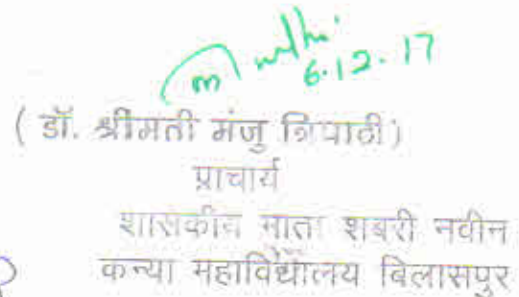 6.12.17
( डॉ. श्रीमती मंजु त्रिपाठी)
प्राचार्य
शासकीय माता शबरी नवीन
कन्या महाविद्यालय बिलासपुर